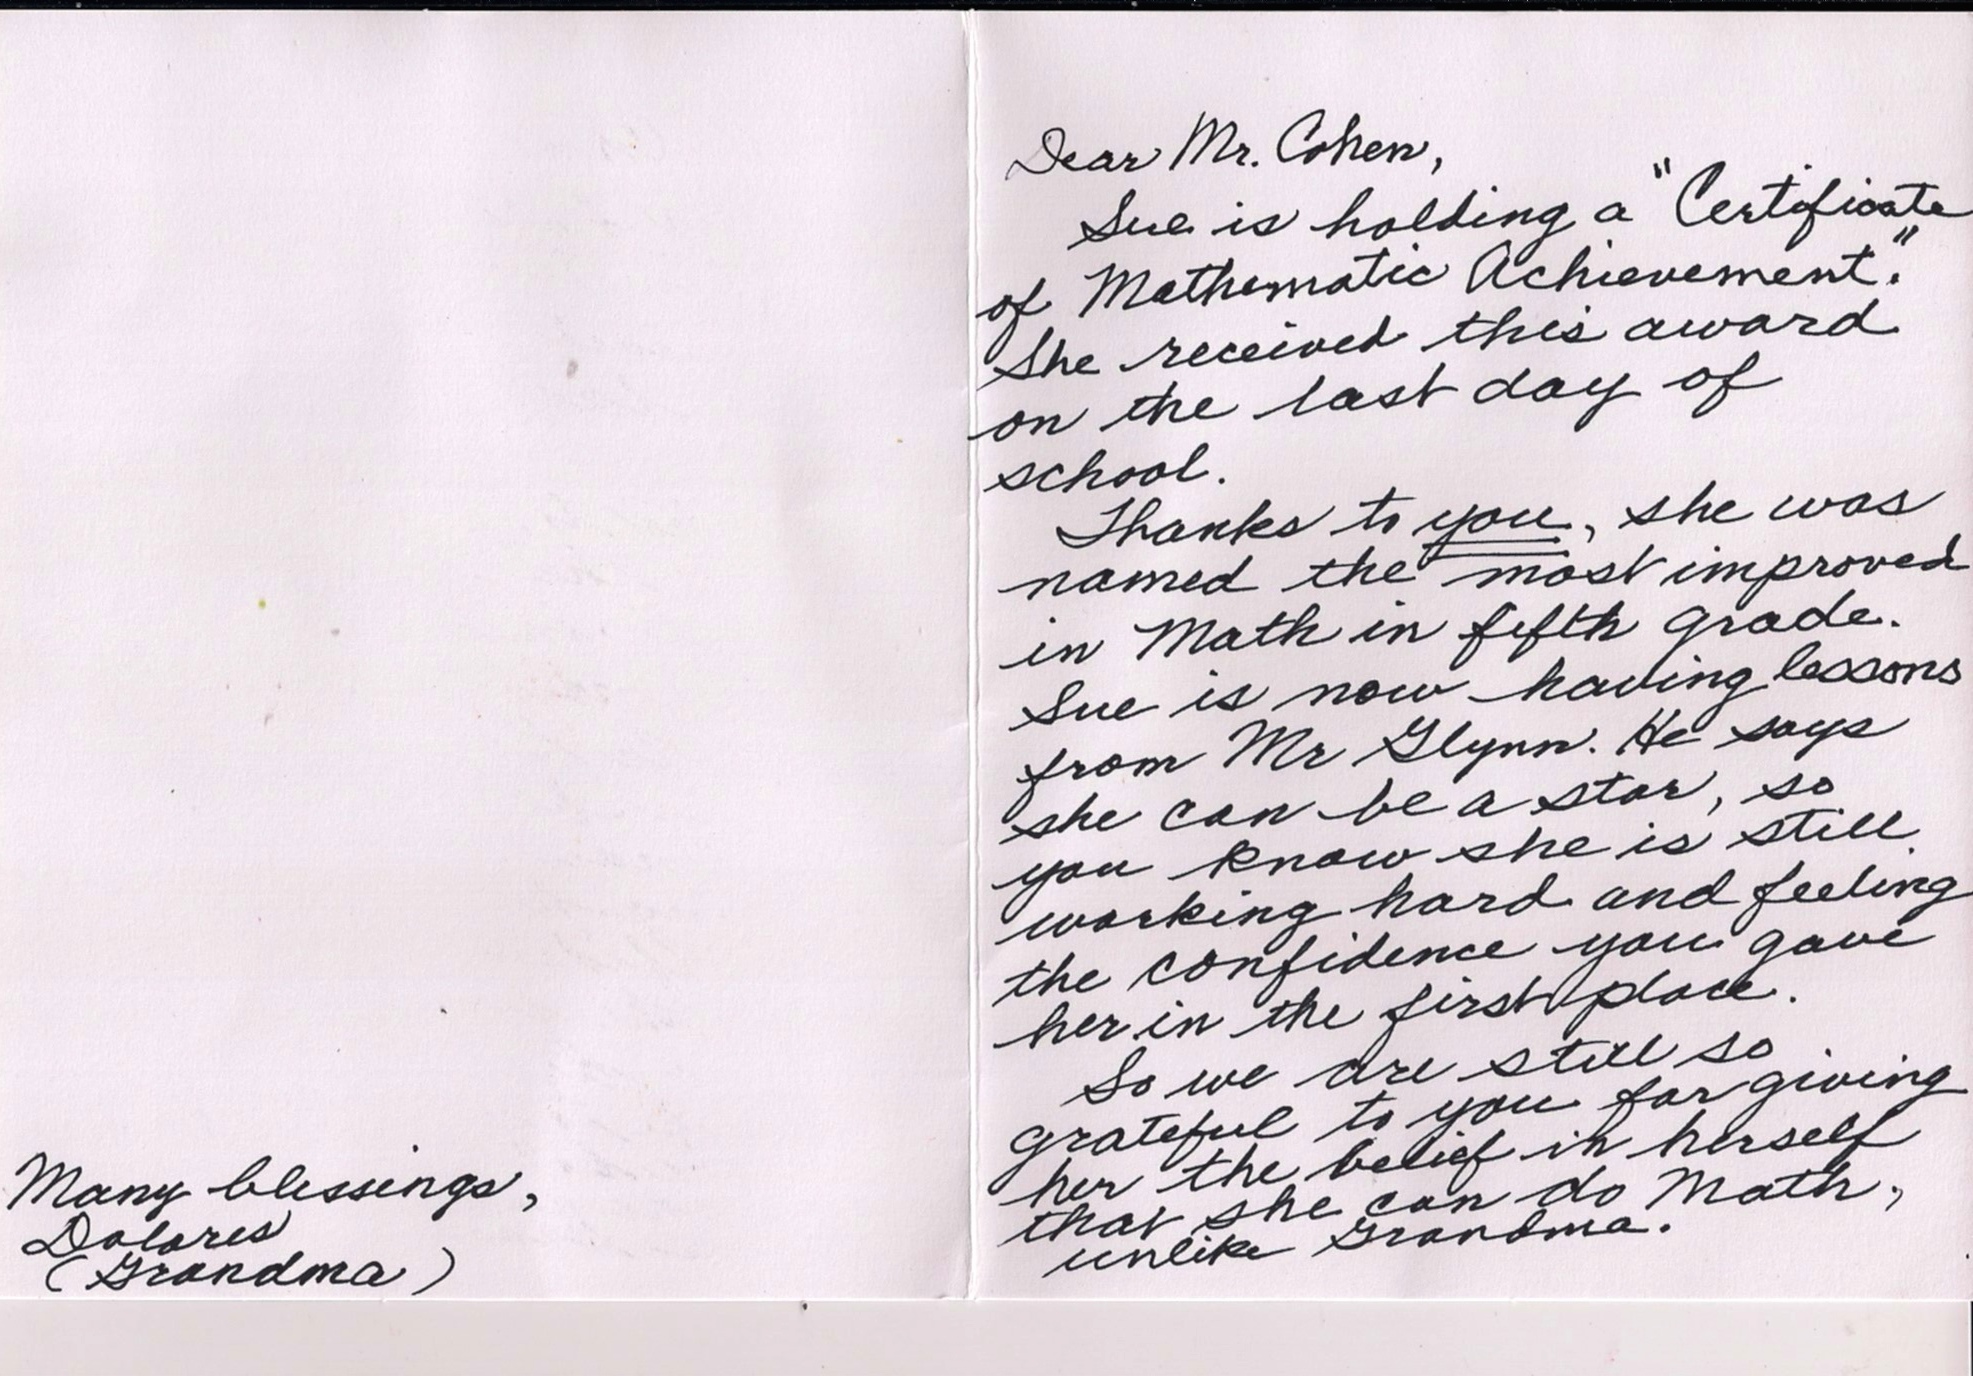 Dear Mr. Cohen,
Sue is holding a "Certificate
of Mathematic Achievement."
She received this award
on the last day of
school.
Thanks to you, she was
named the most improved
in Math in fifth grade.
Sue is now having lessons
from Mr Glynn. He says
she can be a star, so
you know she is still
working hard and feeling
the confidence you gave
her in the first place.
So we are still so
grateful to you for giving
her the belief in herself
that she can do Math,
unlike Grandma.
Many blessings,
Dolores
(Grandma)